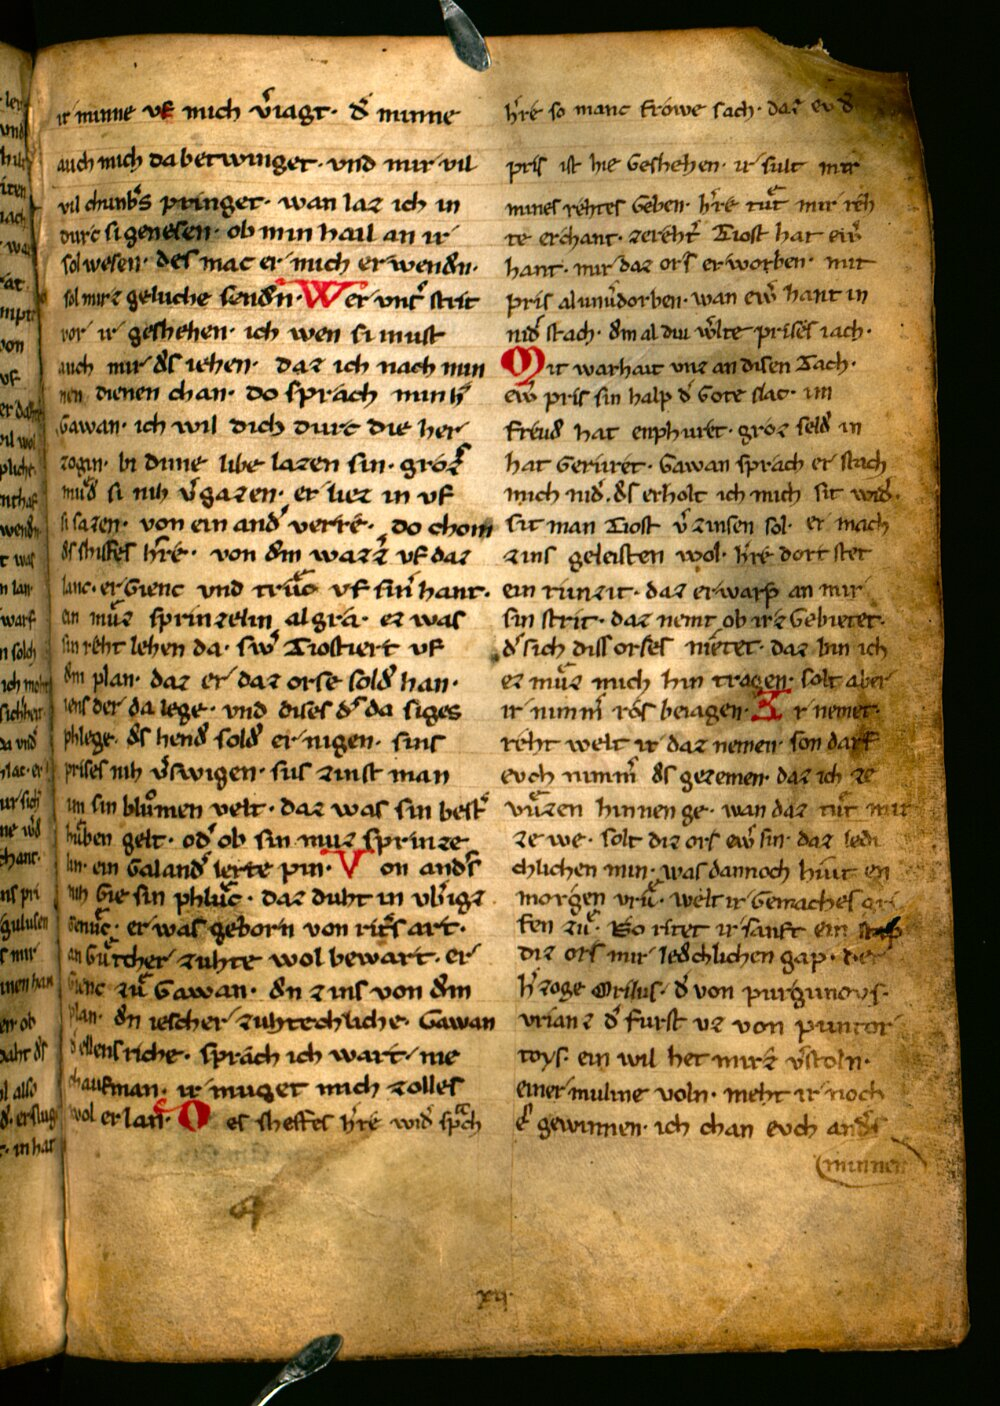 ir minne vf mich v̓iagt· d̓ minne
auch mich da betwinget· vnd mir vil
vil chunb̓s pringet· wan laz ich in
durc si genesen· ob min hail an ir
sol wesen· des mac er mich erwend̓n·
sol mirz geluche send̓n· Wer vnc̓ strit
vor ir geshehen· ich wen si must
auch mir d̓s iehen· daz ich nach min
nen dienen chan· do sprach min h̓
Gawan· ich wil dich durc die her
zogin· bi dime libe lazen sin· groz̓
mud̓ si nih v̓gazen· er liez in vf
si sazen· von ein and̓ verre· do chom
d̓s shiffes h̓re· von d̓m wazz̓ vf daz
lant· er Gienc vnd truͦc vf sin̓ hant·
ein muͦz sprinzelin al gra· ez was
sin reht lehen da· sw̓ Tiostiert vf
d̓m plan· daz er daz orse sold̓ han·
iens der da lege· vnd dises d̓s da siges
phlege· d̓s hend̓ sold̓ er nigen· sins
prises nih v̓swigen· sus zinst man
im sin bluͦmen velt· daz was sin best̓
huͦben gelt· od̓ ob sin muz sprinze
lin· ein Galand̓ lerte pin· Von and̓s
nih Gie sin phluͦc· daz duht in vb̓igz
Genuͦc· er was geborn von rit̓s art·
an Guͦtcher zuhte wol bewart· er
Gienc zuͦ Gawan· d̓n zins von d̓m
plan· d̓n iescher zuhtechliche· Gawan
d̓ ellensriche· sprach ich wart nie
chaufman· ir muget mich zolles
wol erlan· Des sheffes h̓re wid̓ spͣch
h̓re so manc frowe sach· daz ev d̓
pris ist hie Geshehen· ir sult mir
mines rehtes Geben· h̓re tuͦt mir reh
te erchant· zereht̓ Tiost hat ew̓
hant· mir daz ors erworben· mit
pris al unv̓dorben· wan ew̓ hant in
nid̓ stach· d̓m al diu w̓lte prises iach·
Mit warhait vnz an disen Tach·
ew̓ pris sin halp d̓ Gote slac· im
freud̓ hat enphuret· groz seld̓ in
hat Geruret· Gawan sprach er stach
mich nid̓· d̓s erholt ich mich sit wid̓·
sit man Tiost v̓zinsen sol· er mach
zins geleisten wol· h̓re dort stet
ein runzit· daz erwarp an mir
sin strit· daz nemt ob irz Gebietet·
d̓ sich diss orses nietet· daz bin ich
ez muͦz mich hin tragen· solt aber
ir nimm̓ ros beiagen· Ir nemet
reht welt ir daz nemen· son darf
evch nimm̓ d̓s gezemen· daz ich ze
vuͦzen hinnen ge· wan daz tuͦt mir
ze we· solt diz ors ew̓ sin· daz ledi
chlichen min· was dannoch hiut en
morgen vruͦ· welt ir Gemaches gri
fen zuͦ· so ritet ir sanft ein stap
diz ors mir led̓chlichen gap· der
h̓zoge Orilus· d̓ von purgunoys·
vrianz d̓ furst vz von puntor
toys· ein wil het mirz v̓stoln·
einer muline voln· meht ir noch
e̓ gewinnen· ich chan evch and̓s
minnen
xij·